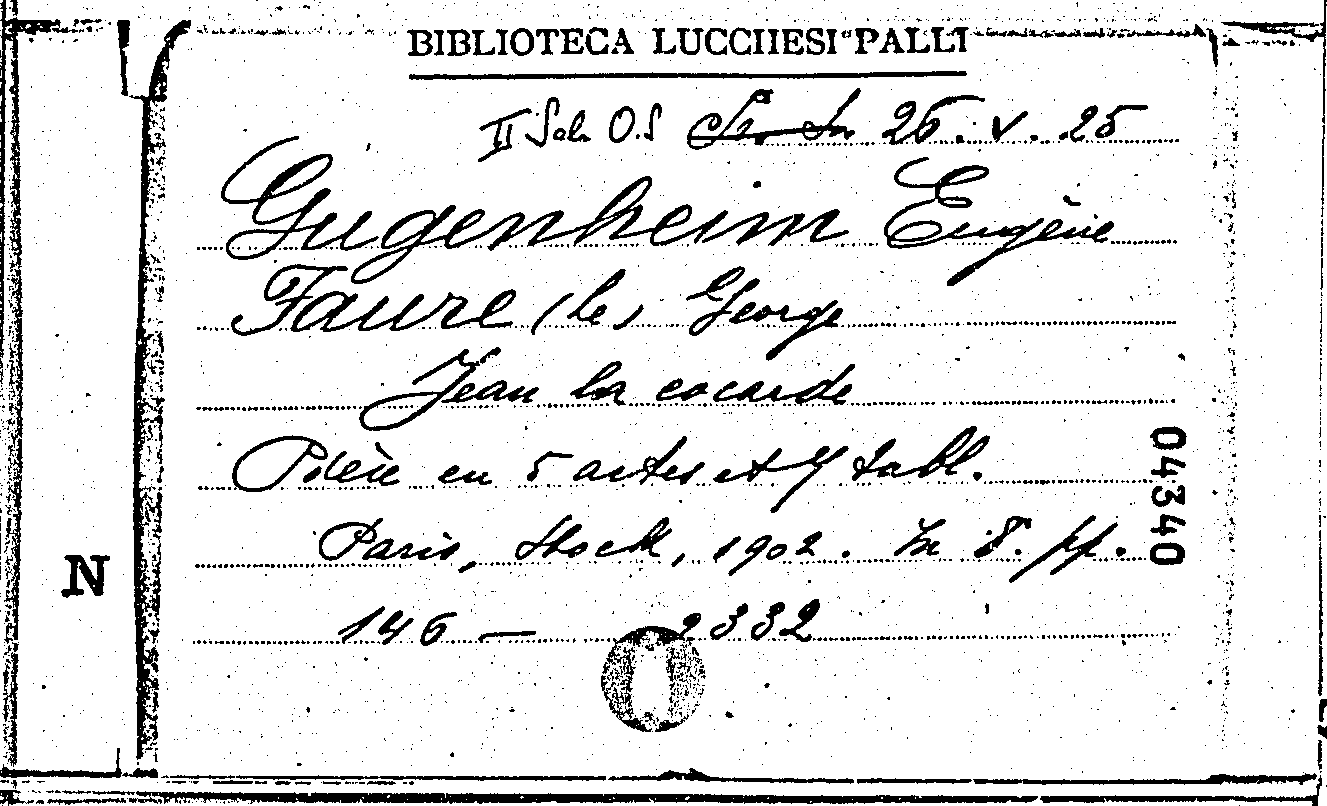 BIBLIOTECA LUCCHESI-PALLI
II Sala O.S 26.V.25
Gugenheim Eugène
Faure (le) George
Jean la cocarde
Pièce en 5 actes et 7 tabl.
Paris, Stock, 1902. In 8. pp.
146 — 2332
04340
N